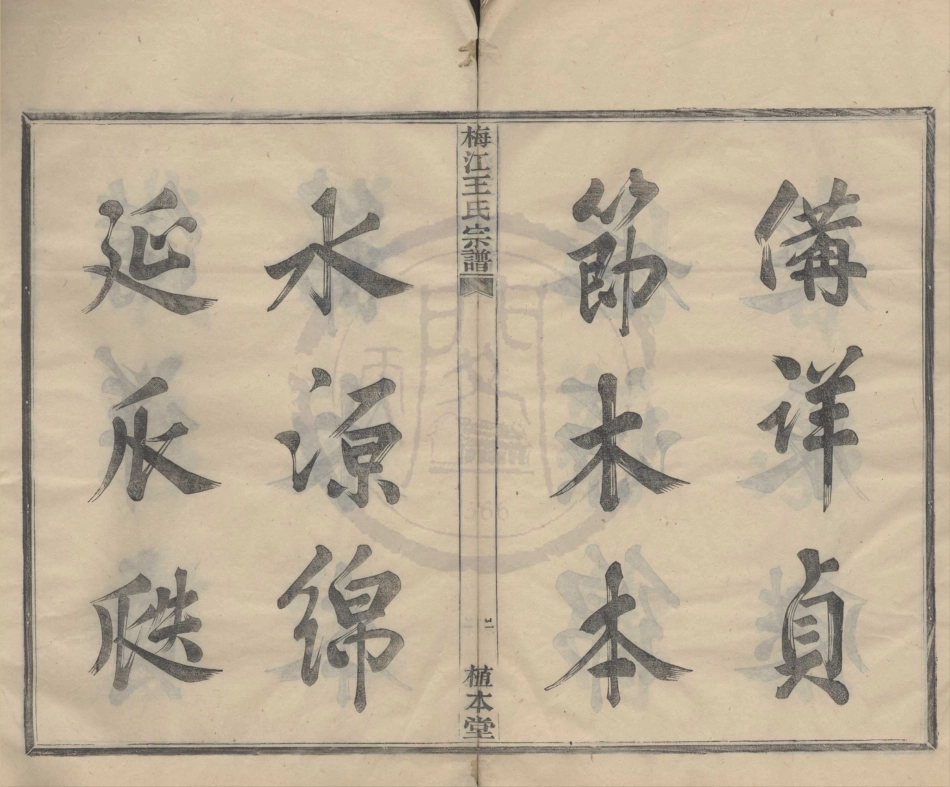 備詳貞
節木本
梅江王氏宗譜
二
植本堂
水源綿
延瓜瓞